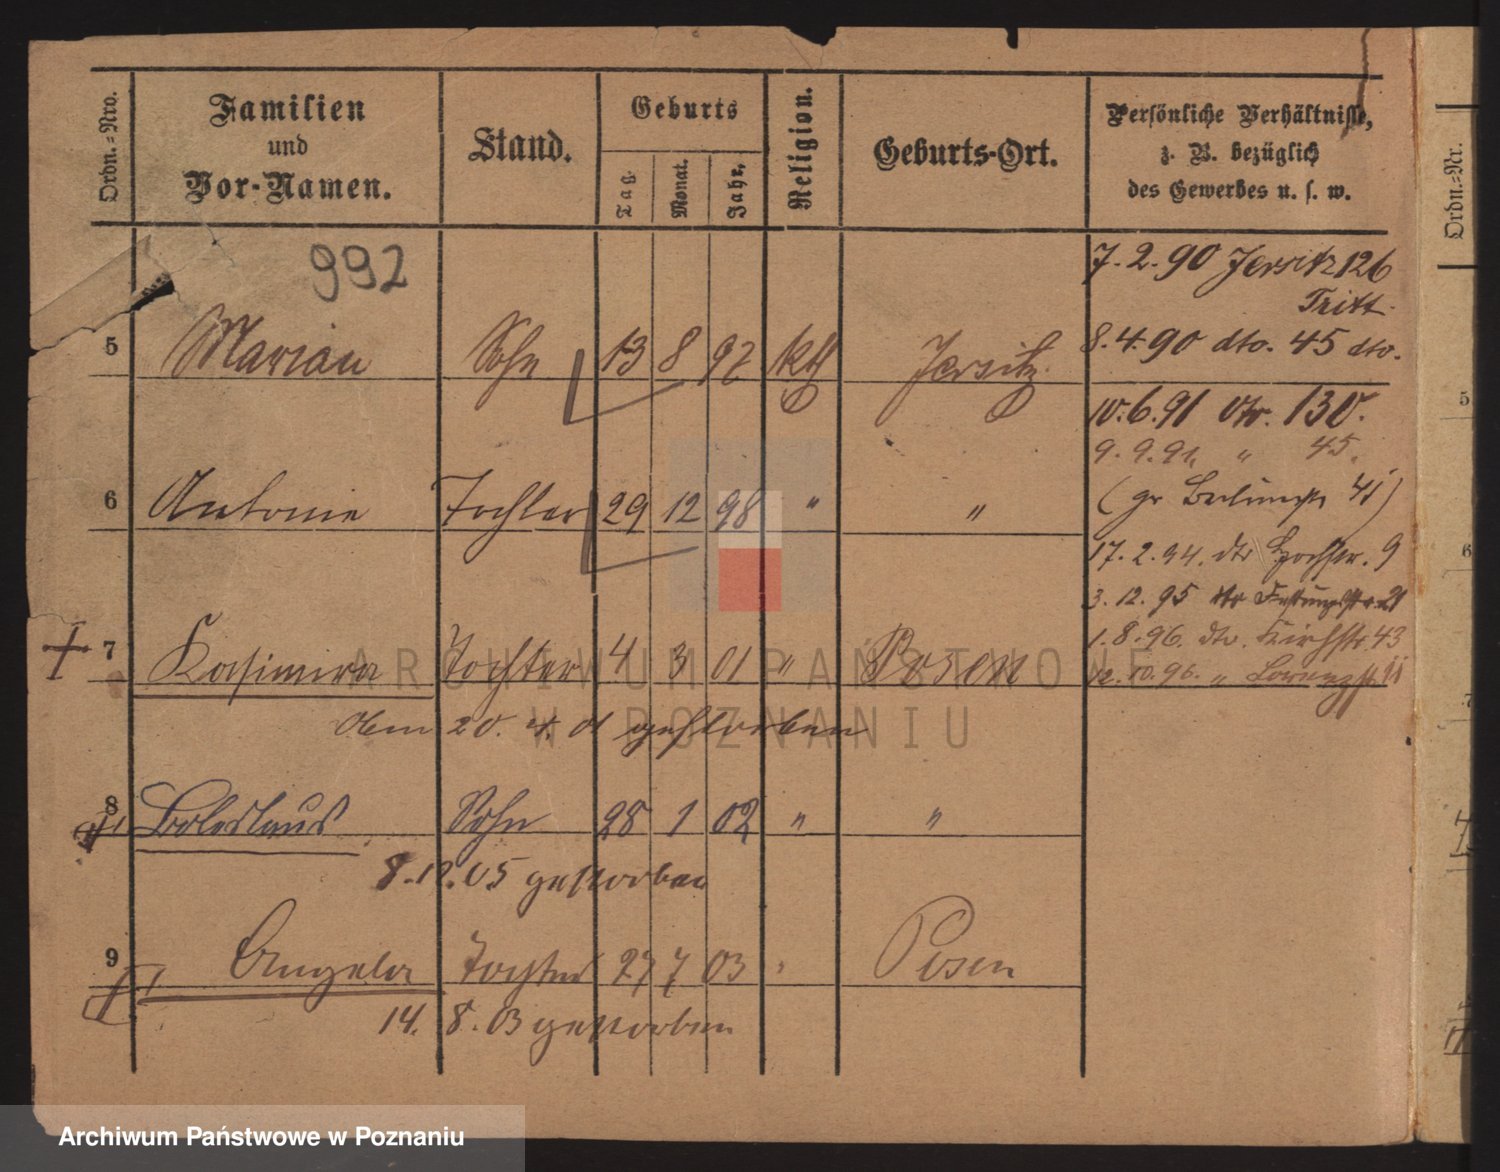 Ordn.=Nro.
Familien
und
Vor-Namen.
Stand.
Geburts
Tag.
Monat.
Jahr.
Religion.
Geburts-Ort.
Persönliche Verhältnisse,
z. B. bezüglich
des Gewerbes u. s. w.
Ordn.=Nr.
992
7. 2. 90 Jersitz 126
Tritt.
8. 4. 90 dto. 45 dto.
5 Marian Sohn 13 8 97 kth Jersitz
10. 6. 91 dto. 130.
9. 9. 91 " 45.
(gr Berlinerstr 41)
6 Antonie Tochter 29 12 98 " "
17. 2. 94. dto 9
3. 12. 95 dto Festungsstr 21
1. 8. 96. dto. Kirchstr. 43
12. 10. 96. " Lorenzstr 11
7 Kasimira Tochter 4 3 01 " Posen
Am 20. 4. 01 gestorben
8 Boleslaus Sohn 28 1 02 " "
8. 12. 05 gestorben
9 Angela Tochter 27 7 03 " Posen
14. 8. 03 gestorben
5
6
7
ARCHIWUM PAŃSTWOWE
W POZNANIU
Archiwum Państwowe w Poznaniu